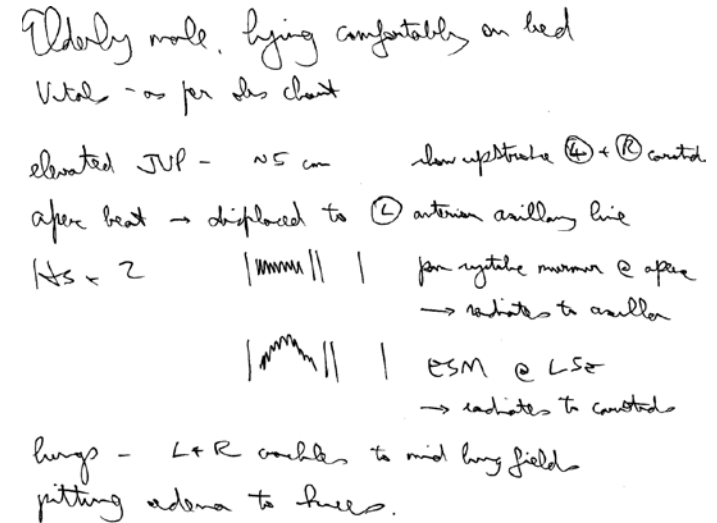 Elderly male, lying comfortably on bed
Vitals - as per obs chart
elevated JVP - ~5 cm slow upstroke Ⓛ + Ⓡ carotid
apex beat → displaced to Ⓛ anterior axillary line
HS x 2 pan systolic murmur @ apex
→ radiates to axilla
ESM @ LSE
→ radiates to carotids
lungs - L+R crackles to mid lung fields
pitting edema to knees.